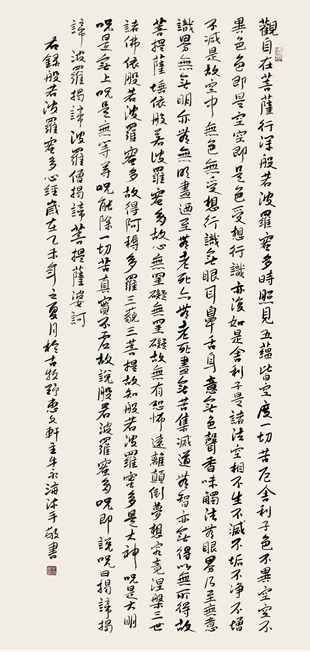 觀自在菩薩行深般若波羅蜜多時照見五蘊皆空度一切苦厄舍利子色不異空空不
異色色即是空空即是色受想行識亦復如是舍利子是諸法空相不生不滅不垢不净不增
不減是故空中無色無受想行識無眼耳鼻舌身意無色聲香味觸法無眼界乃至無意
識界無無明亦無無明盡乃至無老死亦無老死盡無苦集滅道無智亦無得以無所得故
菩提薩埵依般若波羅蜜多故心無罣礙無罣礙故無有恐怖遠離顛倒夢想究竟涅槃三世
諸佛依般若波羅蜜多故得阿耨多羅三藐三菩提故知般若波羅蜜多是大神呪是大明
呪是無上呪是無等等呪能除一切苦真實不虛故說般若波羅蜜多呪即說呪曰揭諦揭
諦波羅揭諦波羅僧揭諦菩提薩婆訶
右錄般若波羅蜜多心經歲在乙未年之夏月於古牧野惠文軒主牛永海沐手敬書